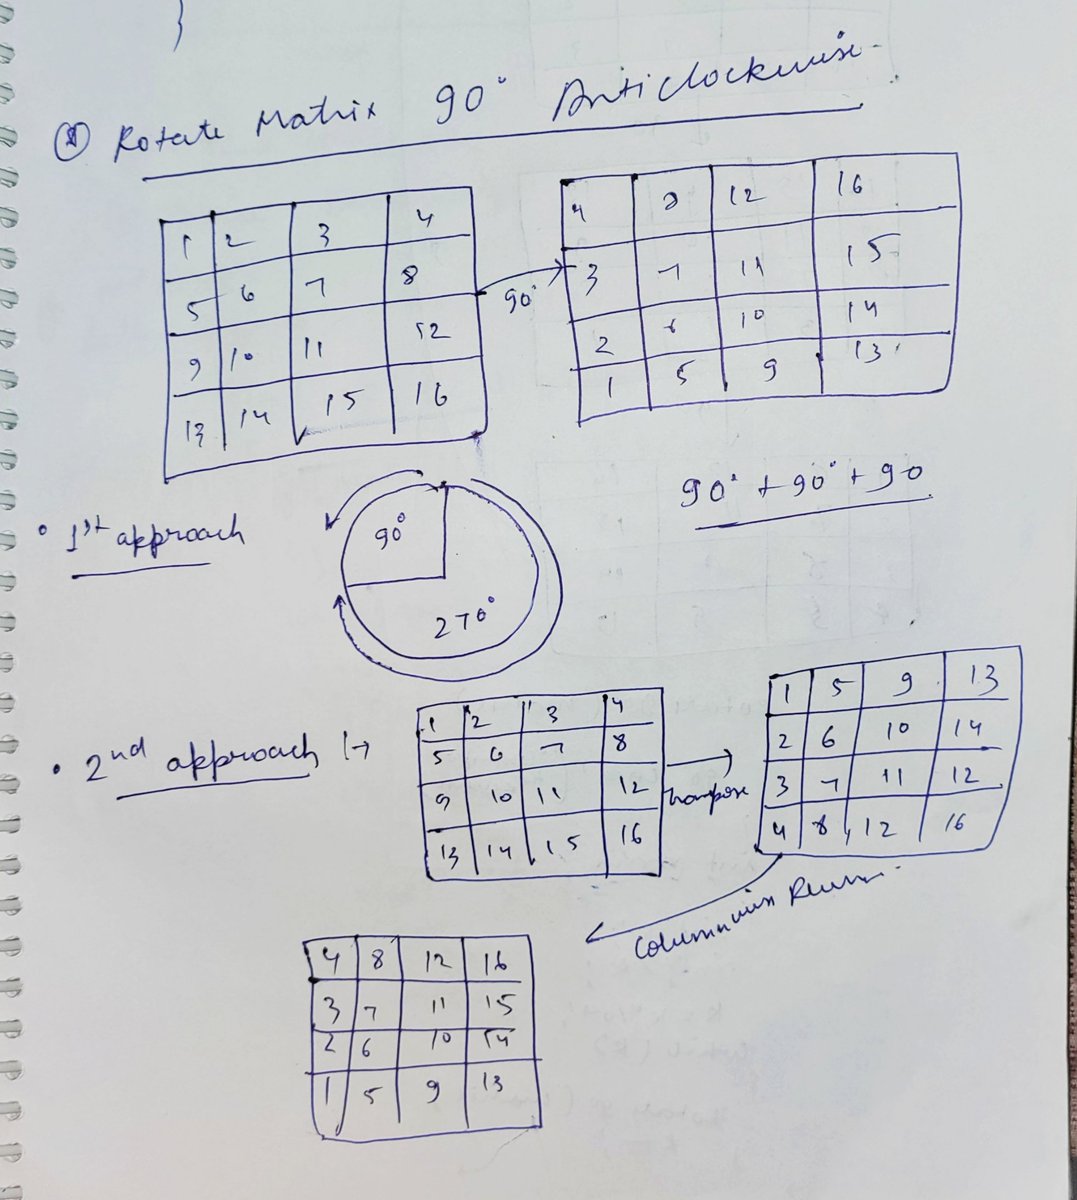 }
⑧ Rotate Matrix 90° Anticlockwise
1 2 3 4
5 6 7 8
9 10 11 12
13 14 15 16
90°
4 8 12 16
3 7 11 15
2 6 10 14
1 5 9 13
90° + 90° + 90
• 1st approach
90°
270°
• 2nd approach :→
1 2 3 4
5 6 7 8
9 10 11 12
13 14 15 16
Transpose
1 5 9 13
2 6 10 14
3 7 11 12
4 8 12 16
Columnwise
4 8 12 16
3 7 11 15
2 6 10 14
1 5 9 13